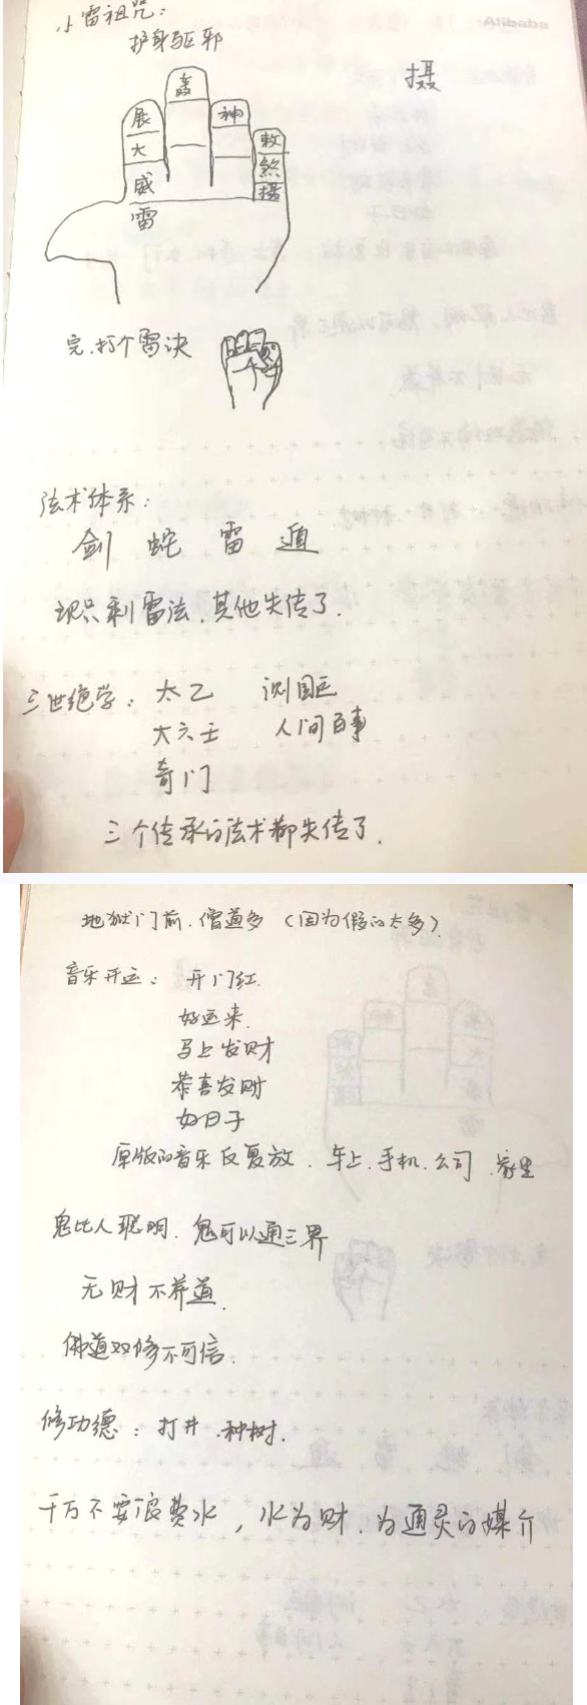 小雷祖咒：
护身驱邪
摄
轰
展
神
大
敕
煞
威
摄
雷
完.打个雷决
法术体系：
剑 蛇 雷 遁
现只剩雷法.其他失传了.
三世绝学：太乙 测国运
大六壬 人间百事
奇门
三个传承的法术都失传了.
地狱门前.僧道多（因为假的太多）.
音乐开运：开门红.
好运来.
马上发财
恭喜发财
好日子
原版的音乐反复放.车上.手机.公司.家里
鬼比人聪明.鬼可以通三界
无财不养道.
佛道双修不可信.
修功德：打井.种树.
千万不要浪费水，水为财.为通灵的媒介